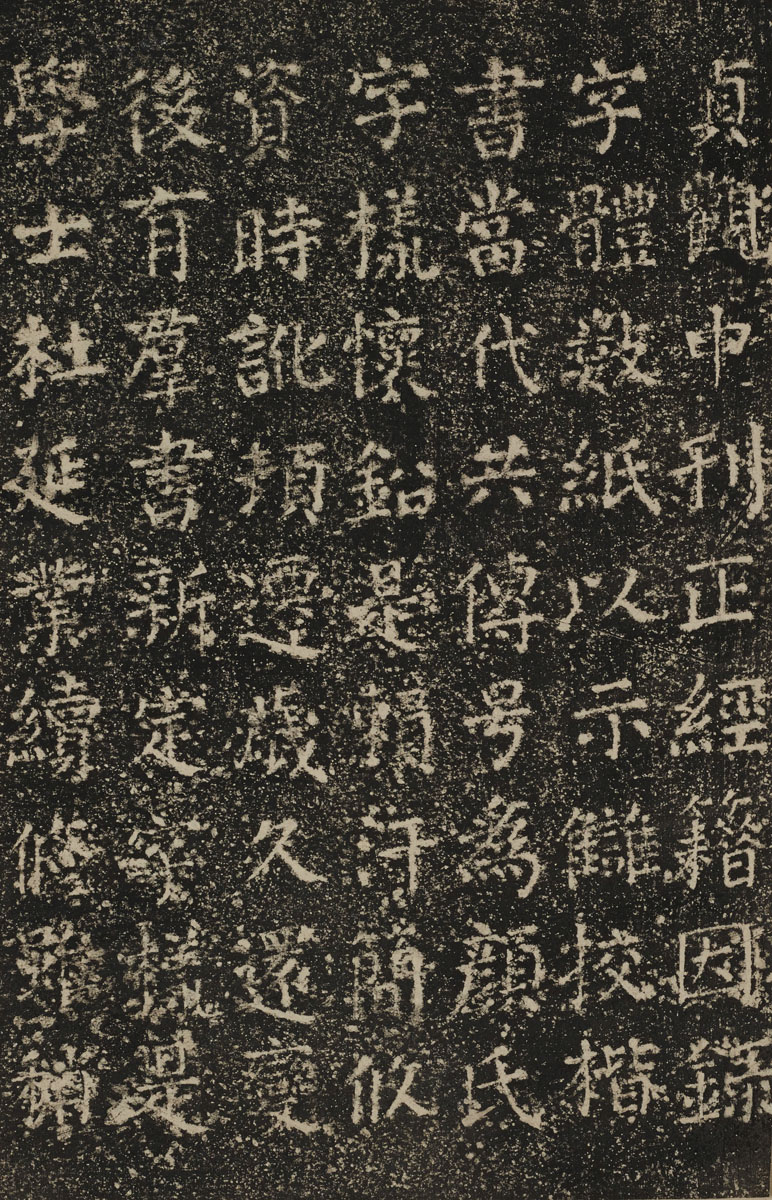 貞觀中刊正經籍因錄
字體數紙以示讎挍楷
書當代共傳号為顏氏
字樣懷鈆是賴汗簡攸
資時訛頓遷歲久還變
後有羣書新定字樣是
學士杜延業續修雖稍